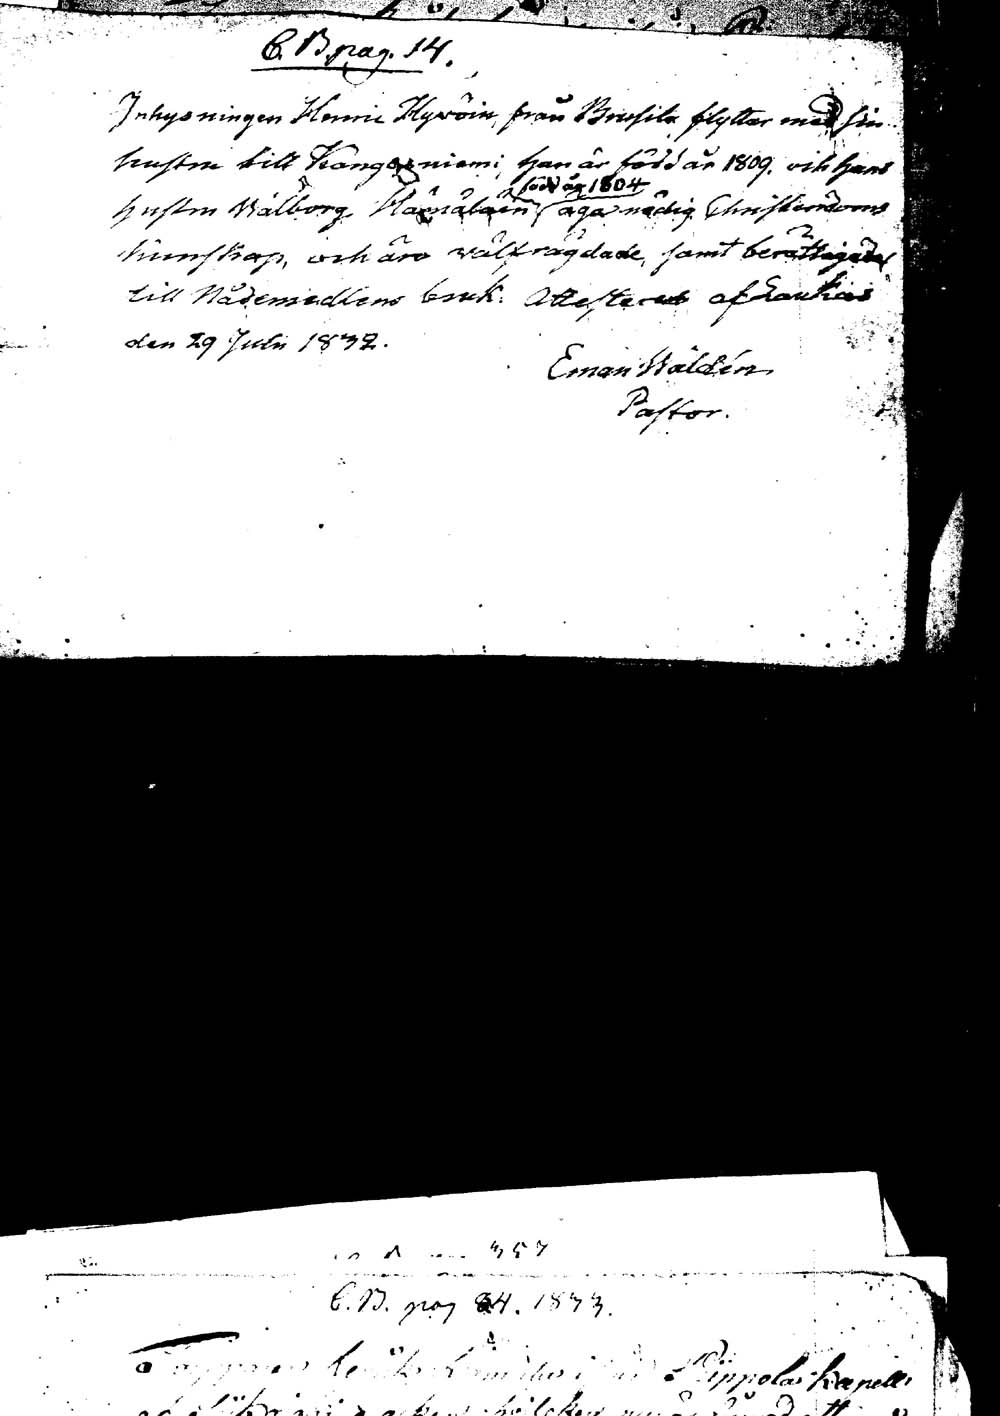 C. B. pag. 14.
Inhysningen Henric Hyvöin, från Brusila flyttar med sin
hustru till Kangasniemi; han är född år 1809. och hans
född år 1804
hustru Wälborg Hämäläin äga nödig Christendoms
kunskap, och äro välfrägdade, samt berättigade
till Nådemedlens bruk. Attesteras af Laukas
den 29 Julii 1832.
Eman Wäldén
Pastor.
357
C. B. pag 84. 1833.
Pippola kapell